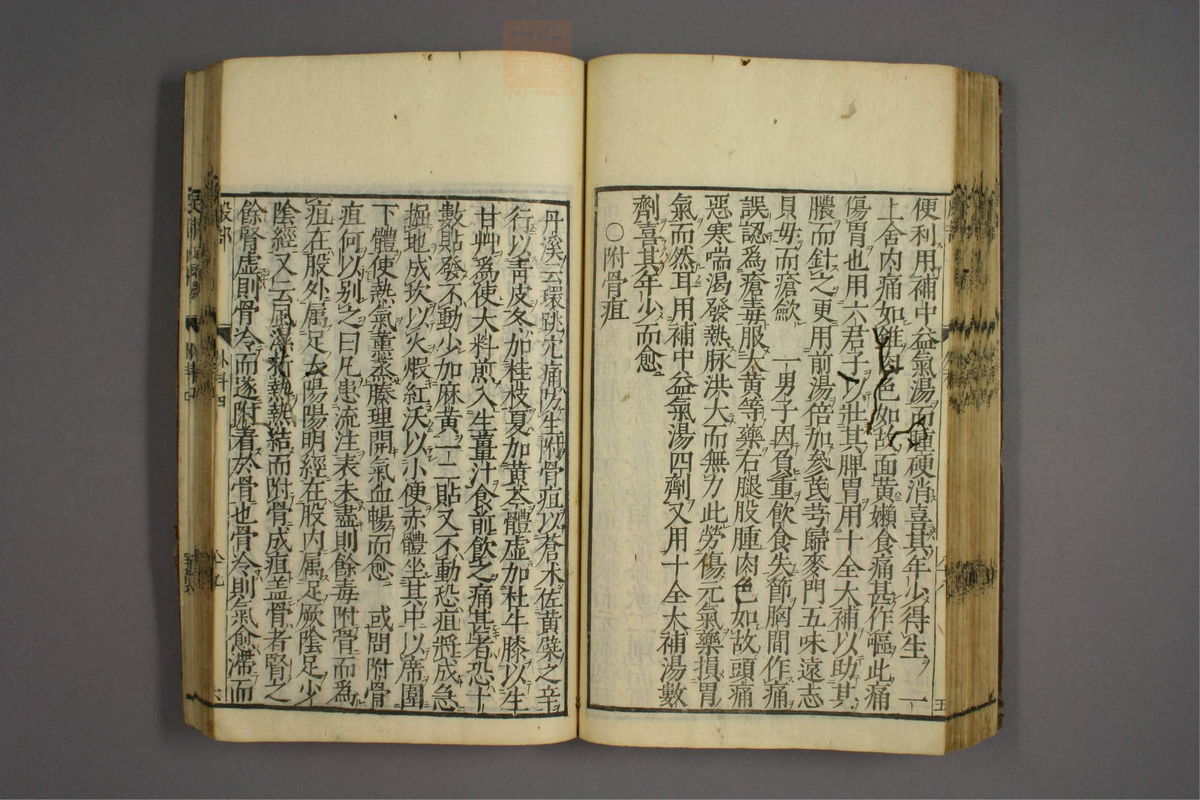 便利用補中益氣湯而腫硬消喜其年少得生 一
上舍內痛如錐肉色如故面黃懶食痛甚作嘔此痛
傷胃也用六君子以壯其脾胃用十全大補以助其
膿而針之更用前湯倍加參芪芎歸麥門五味遠志
貝母而瘡斂 一男子因負重飲食失節胸間作痛
誤認爲瘡毒服大黃等藥右腿股腫肉色如故頭痛
惡寒喘渴發熱脉洪大而無力此勞傷元氣藥損胃
氣而然耳用補中益氣湯四劑又用十全大補湯數
劑喜其年少而愈
○附骨疽
五
丹溪云環跳穴痛防生附骨疽以蒼朮佐黃蘗之辛
行以靑皮冬加桂枝夏加黃芩體虛加杜牛膝以生
甘艸爲使大料煎入生薑汁食前飲之痛甚者恐十
數貼發不動少加麻黃一二貼又不動恐疽將成急
掘地成坎以火煆紅沃以小便赤體坐其中以席圍
下體使熱氣薰蒸腠理開氣血暢而愈 或問附骨
疽何以別之曰凡患流注表未盡則餘毒附骨而爲
疽在股外属足太陽陽明經在股內属足厥陰足少
陰經又云風濕 熱熱結而附骨成疽盖骨者腎之
餘腎虛則骨冷而遂附着於骨也骨冷則氣愈滯而
股部
外科四
六